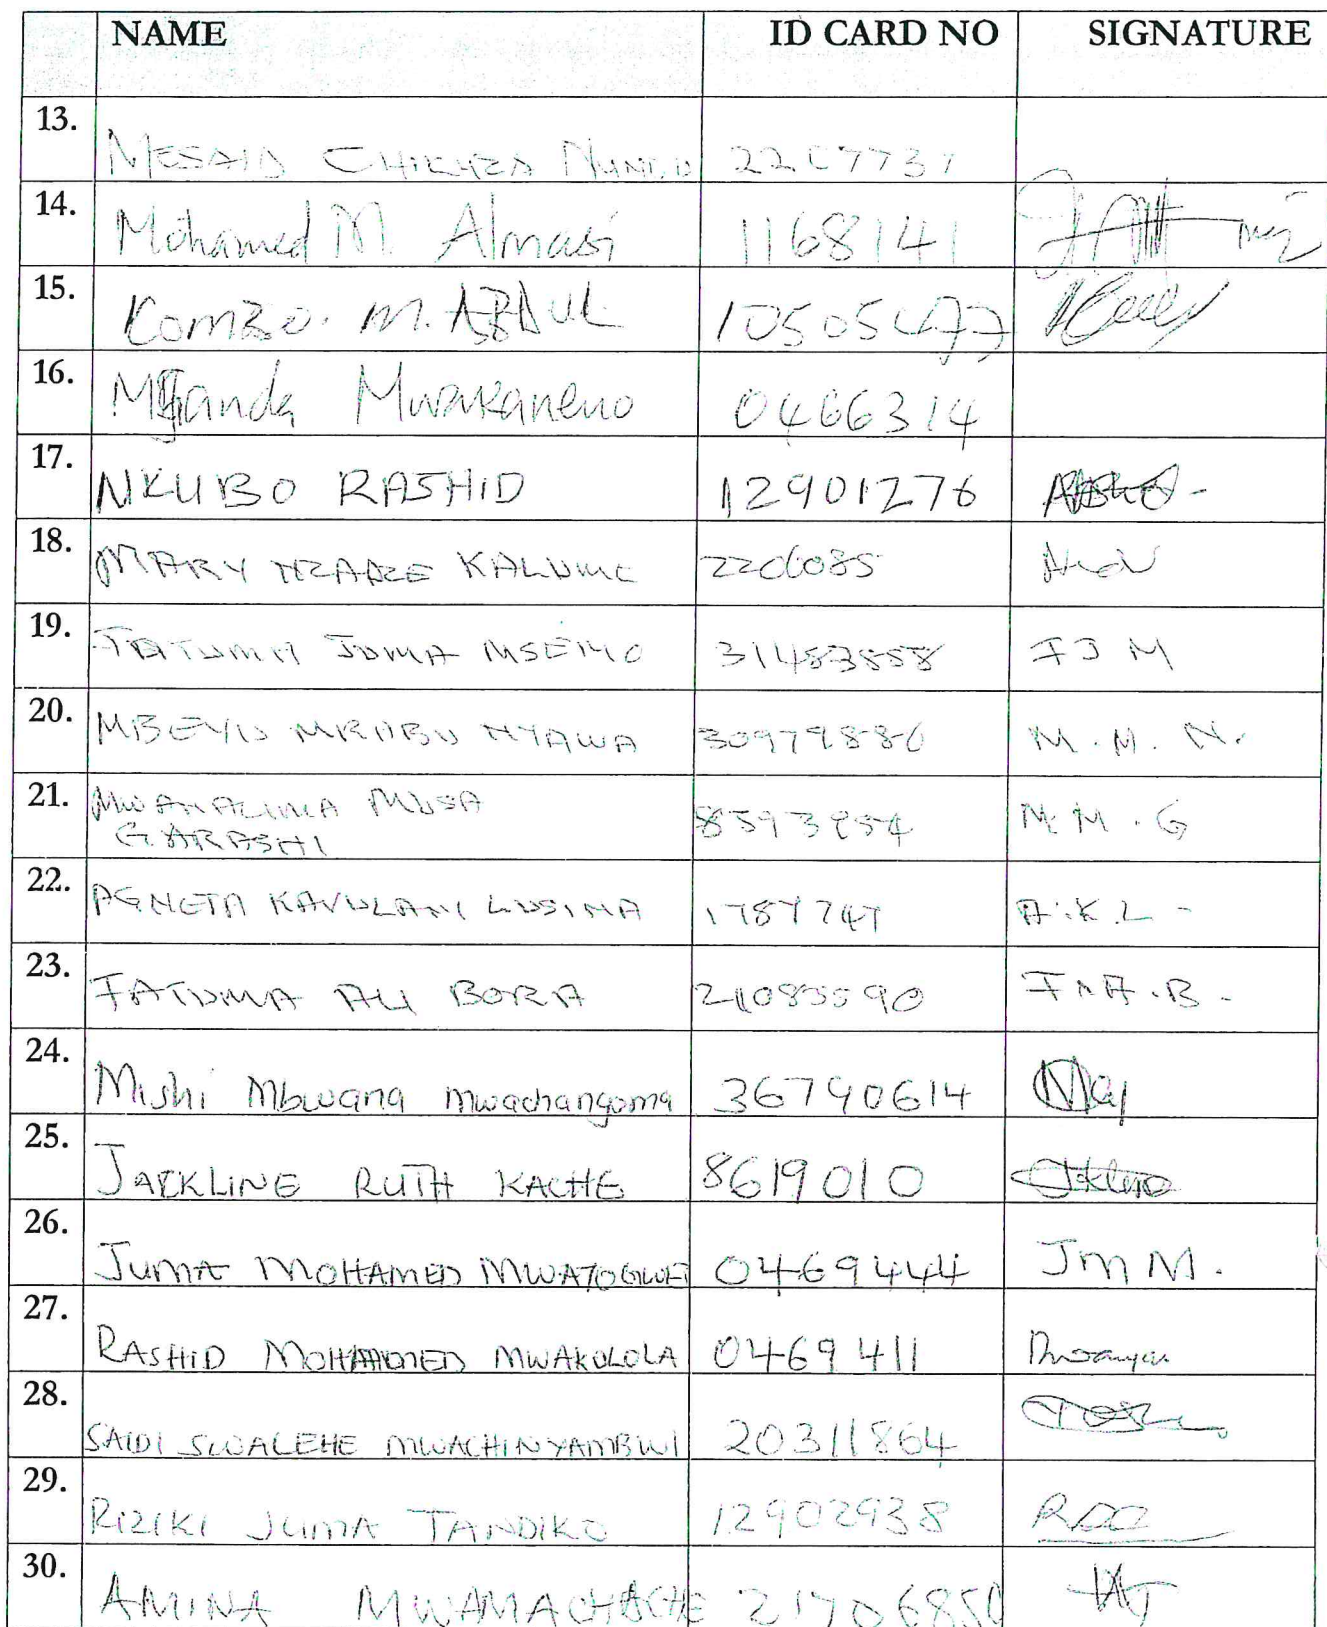 NAME ID CARD NO SIGNATURE
13. MESAID CHIKUZA
14. Mohamed M. Almasi 11168141
15. KOMBO. M. ABDUL 10505477
16. Mwakaneno 0466314
17. NKUBO RASHID 12901276
18. MARY NZADZE KALUME 2206085
19. FATUMA JUMA MSEMO 31483858 FJM
20. MBEYU MRUBU NYAWA M.M.N.
21. MWANALIMA MUSA
GARASHI M.M.G
22. AGNETA KAVULANI LUSINA 1787747 A.K.L -
23. FATUMA ALI BORA F.A.B.
24. Mishi Mbwana Mwachangoma 36790614
25. JACKLINE RUTH KACHE 8619010
26. JUMA MOHAMED 0469444 JMM.
27. RASHID MOHAMMED MWAKULOLA 0469411
28. SAIDI SWALEHE MWACHINYAMBWI 20311864
29. RIZIKI JUMA TANDIKO 12902938
30. AMINA